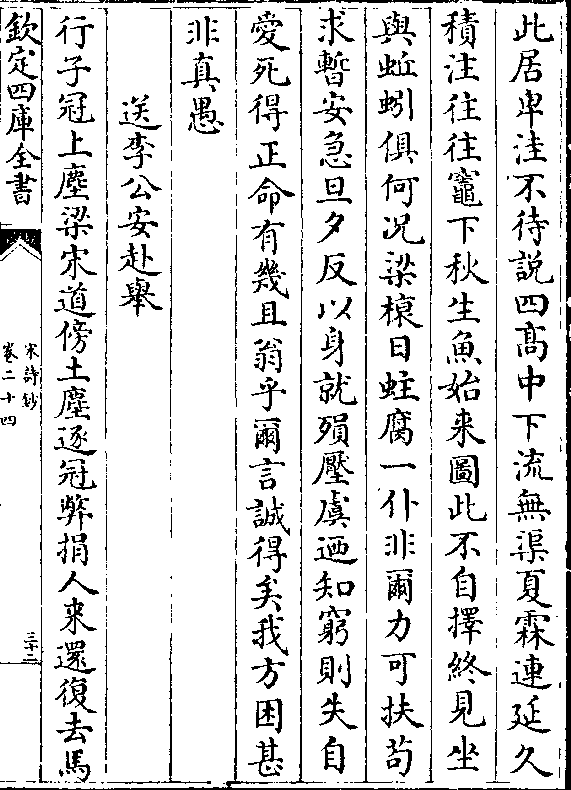 此居卑洼不待説四髙中下流無渠夏霖連延久
積注往往竈下秋生魚始来圖此不自擇終見坐
與蚯蚓俱何况梁棟日蛀腐一仆非爾力可扶茍
求暫安急旦夕反以身就殞壓虞迺知窮則失自
愛死得正命有幾且翁乎爾言誠得矣我方困甚
非真愚
送李公安赴舉
行子冠上塵梁宋道傍土塵逐冠弊捐人来還復去馬
欽定四庫全書
宋詩鈔
卷二十四
三十二